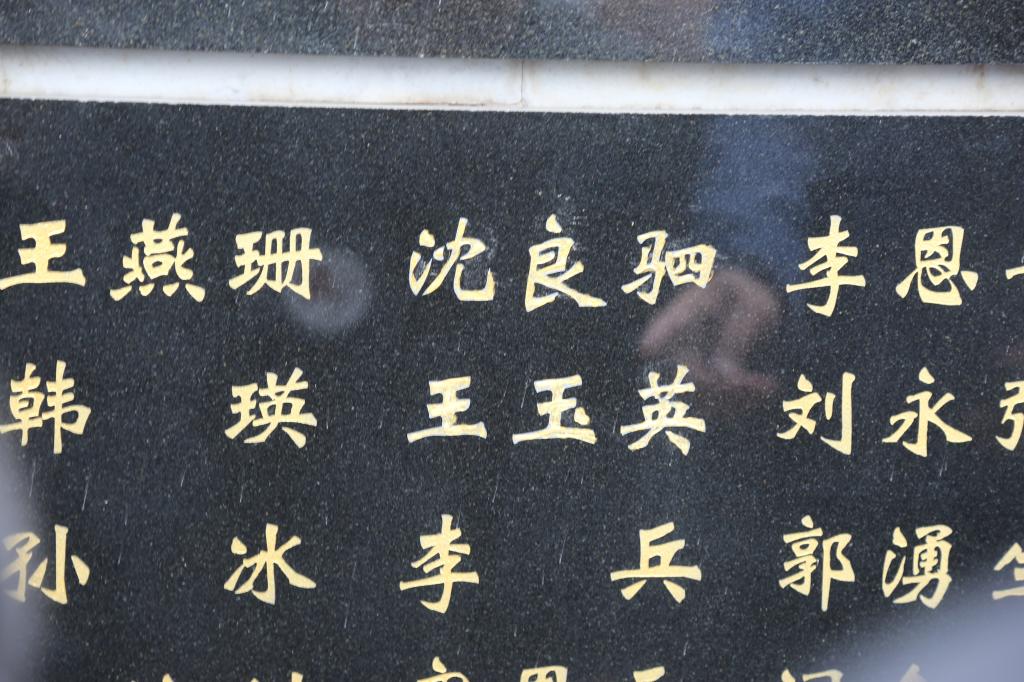 王燕珊 沈良驷 李恩
韩瑛 王玉英 刘永
孙冰 李兵 郭湧